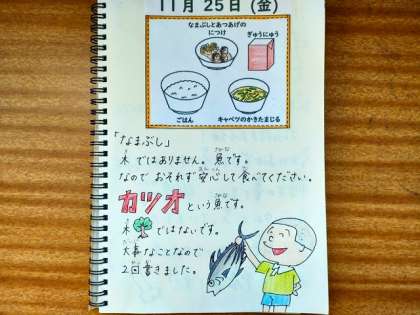 11月 25日 (金)
なまぶしとあつあげの
につけ
ぎゅうにゅう
ごはん
キャベツのかきたまじる
「なまぶし」
木 ではありません。魚です。
なので おそれず安心して食べてください。
カツオ という魚です。
木 ではないです。
大事なことなので
2回書きました。